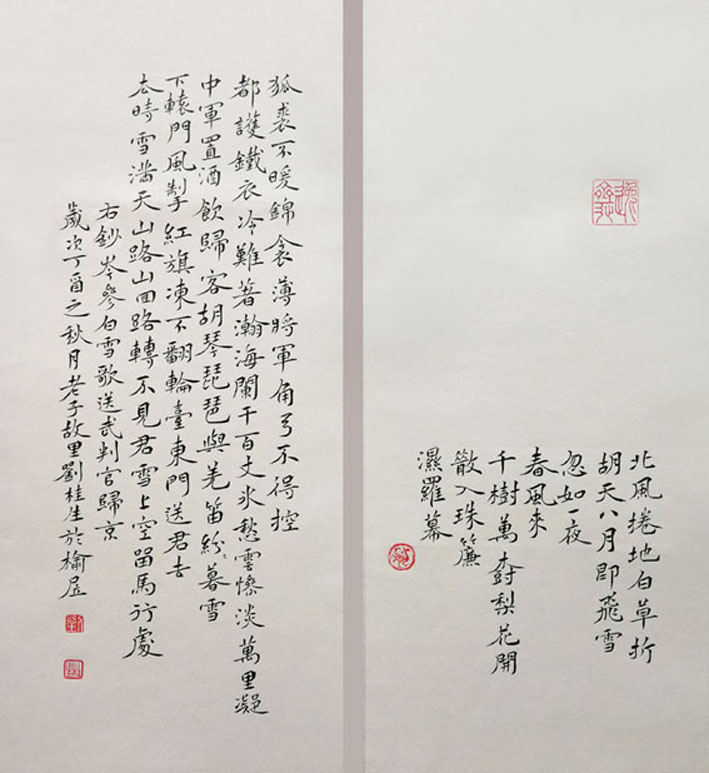 北風捲地白草折
胡天八月即飛雪
忽如一夜
春風來
千樹萬樹梨花開
散入珠簾
濕羅幕
狐裘不暖錦衾薄將軍角弓不得控
都護鐵衣冷難著瀚海闌干百丈冰愁雲慘淡萬里凝
中軍置酒飲歸客胡琴琵琶與羌笛紛〻暮雪
下轅門風掣紅旗凍不翻輪臺東門送君去
去時雪滿天山路山回路轉不見君雪上空留馬行處
右鈔岑參白雪歌送武判官歸京
歲次丁酉之秋月老子故里劉桂生於榆居